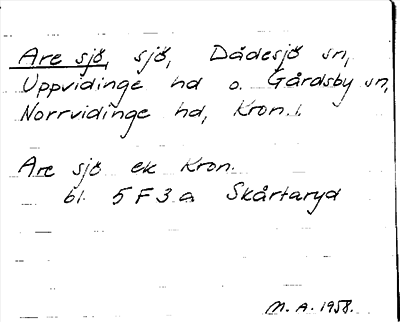 Are sjö, sjö, Dådesjö sn,
Uppvidinge hd o. Gårdsby sn,
Norrvidinge hd, Kron. l.
Are sjö ek Kron.
bl. 5 F 3 a Skårtaryd
M. A. 1958.